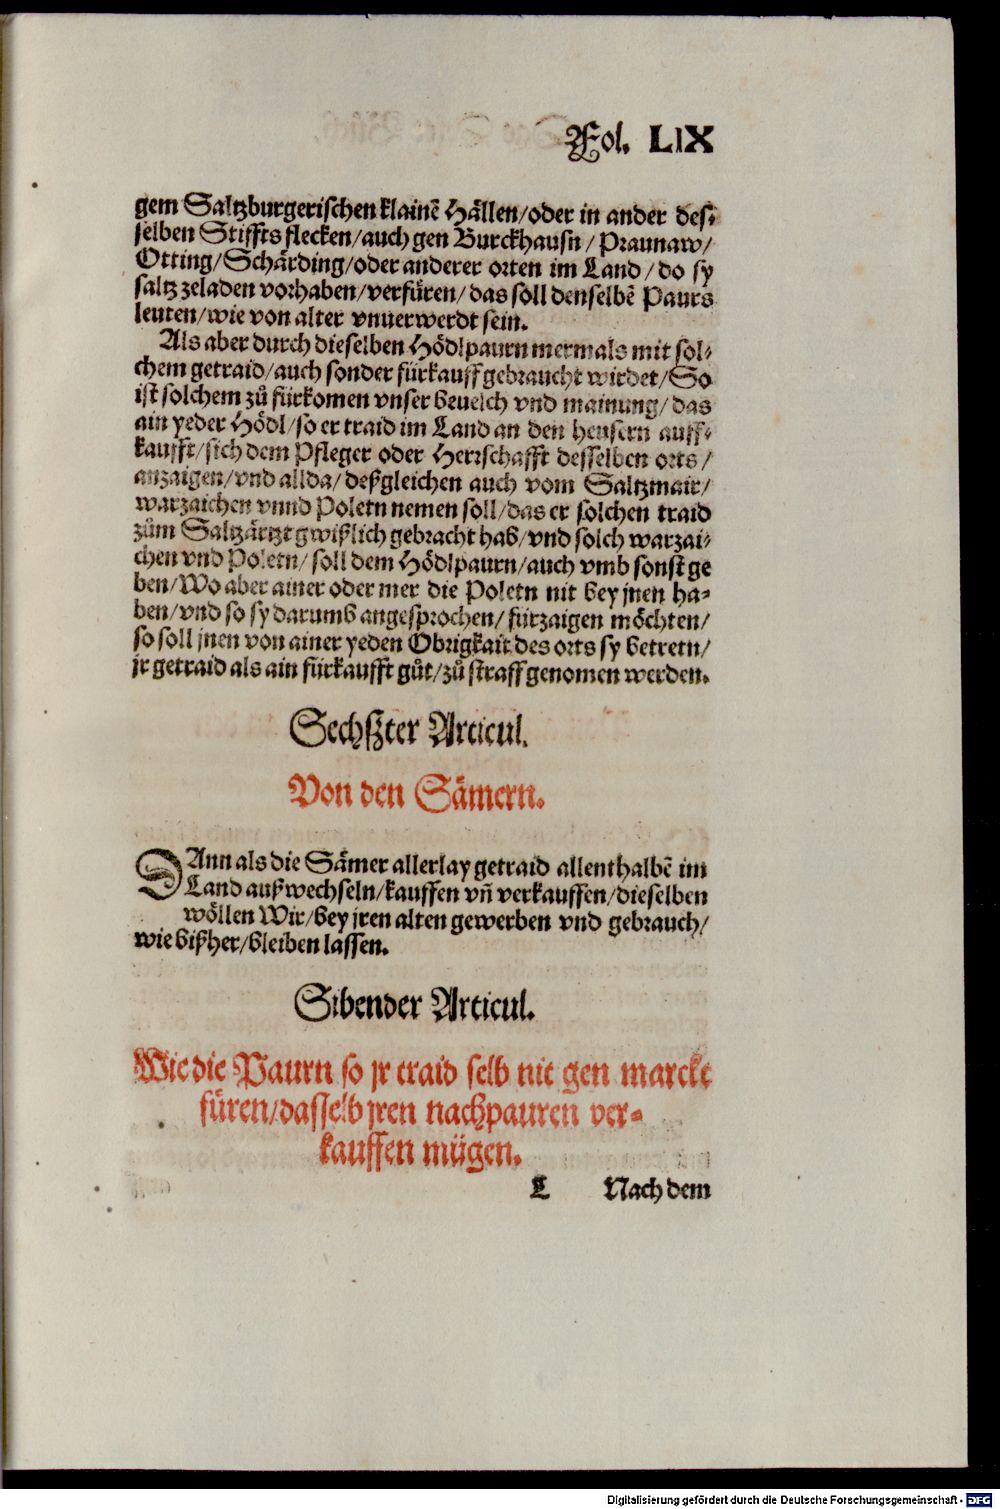 Fol. LIX
gem Saltzburgerischen klainē Hällen/oder in ander des⸗
selben Stiffts flecken/auch gen Burckhausn/Praunaw/
Otting/Schärding/oder anderer orten im Land/do sy
saltz zeladen vorhaben/verfüren/das soll denselbē Paurs
leuten/wie von alter vnuerwerdt sein.
Als aber durch dieselben Hödlpaurn mermals mit sol⸗
chem getraid/auch sonder fürkauff gebraucht wirdet/So
ist solchem zů fürkomen vnser beuelch vnd mainung/das
ain yeder Hödl/so er traid im Land an den heusern auff⸗
kaufft/sich dem Pfleger oder Herrschafft desselben orts/
anzaigen/vnd allda/deßgleichen auch vom Saltzmair/
warzaichen vnnd Poletn nemen soll/das er solchen traid
zům Saltzärtzt gwißlich gebracht hab/vnd solch warzai⸗
chen vnd Poletn/soll dem Hödlpaurn/auch vmb sonst ge
ben/Wo aber ainer oder mer die Poletn nit bey jnen ha⸗
ben/vnd so sy darumb angesprochen/fürzaigen möchten/
so soll jnen von ainer yeden Obrigkait des orts sy betretn/
jr getraid als ain fürkaufft gůt/zů straff genomen werden.
Sechßter Articul.
Von den Sämern.
DAnn als die Sämer allerlay getraid allenthalbē im
Land außwechseln/kauffen vñ verkauffen/dieselben
wöllen Wir/bey jren alten gewerben vnd gebrauch/
wie bißher/bleiben lassen.
Sibender Articul.
Wie die Paurn so jr traid selb nit gen marckt
füren/dasselb jren nachpauren ver⸗
kauffen mügen.
L Nach dem
Digitalisierung gefördert durch die Deutsche Forschungsgemeinschaft - DFG